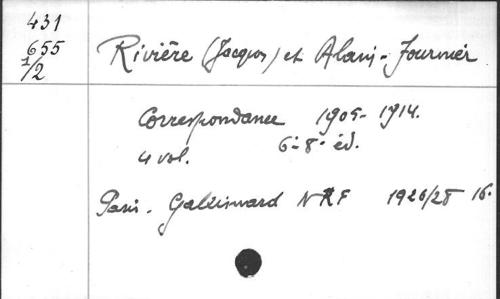 431
655
1/2
Rivière (Jacques) et Alain-Fournier
Correspondance 1905-1914.
4 vol. 6e-8e éd.
Paris. Gallimard NRF 1926/28 16°